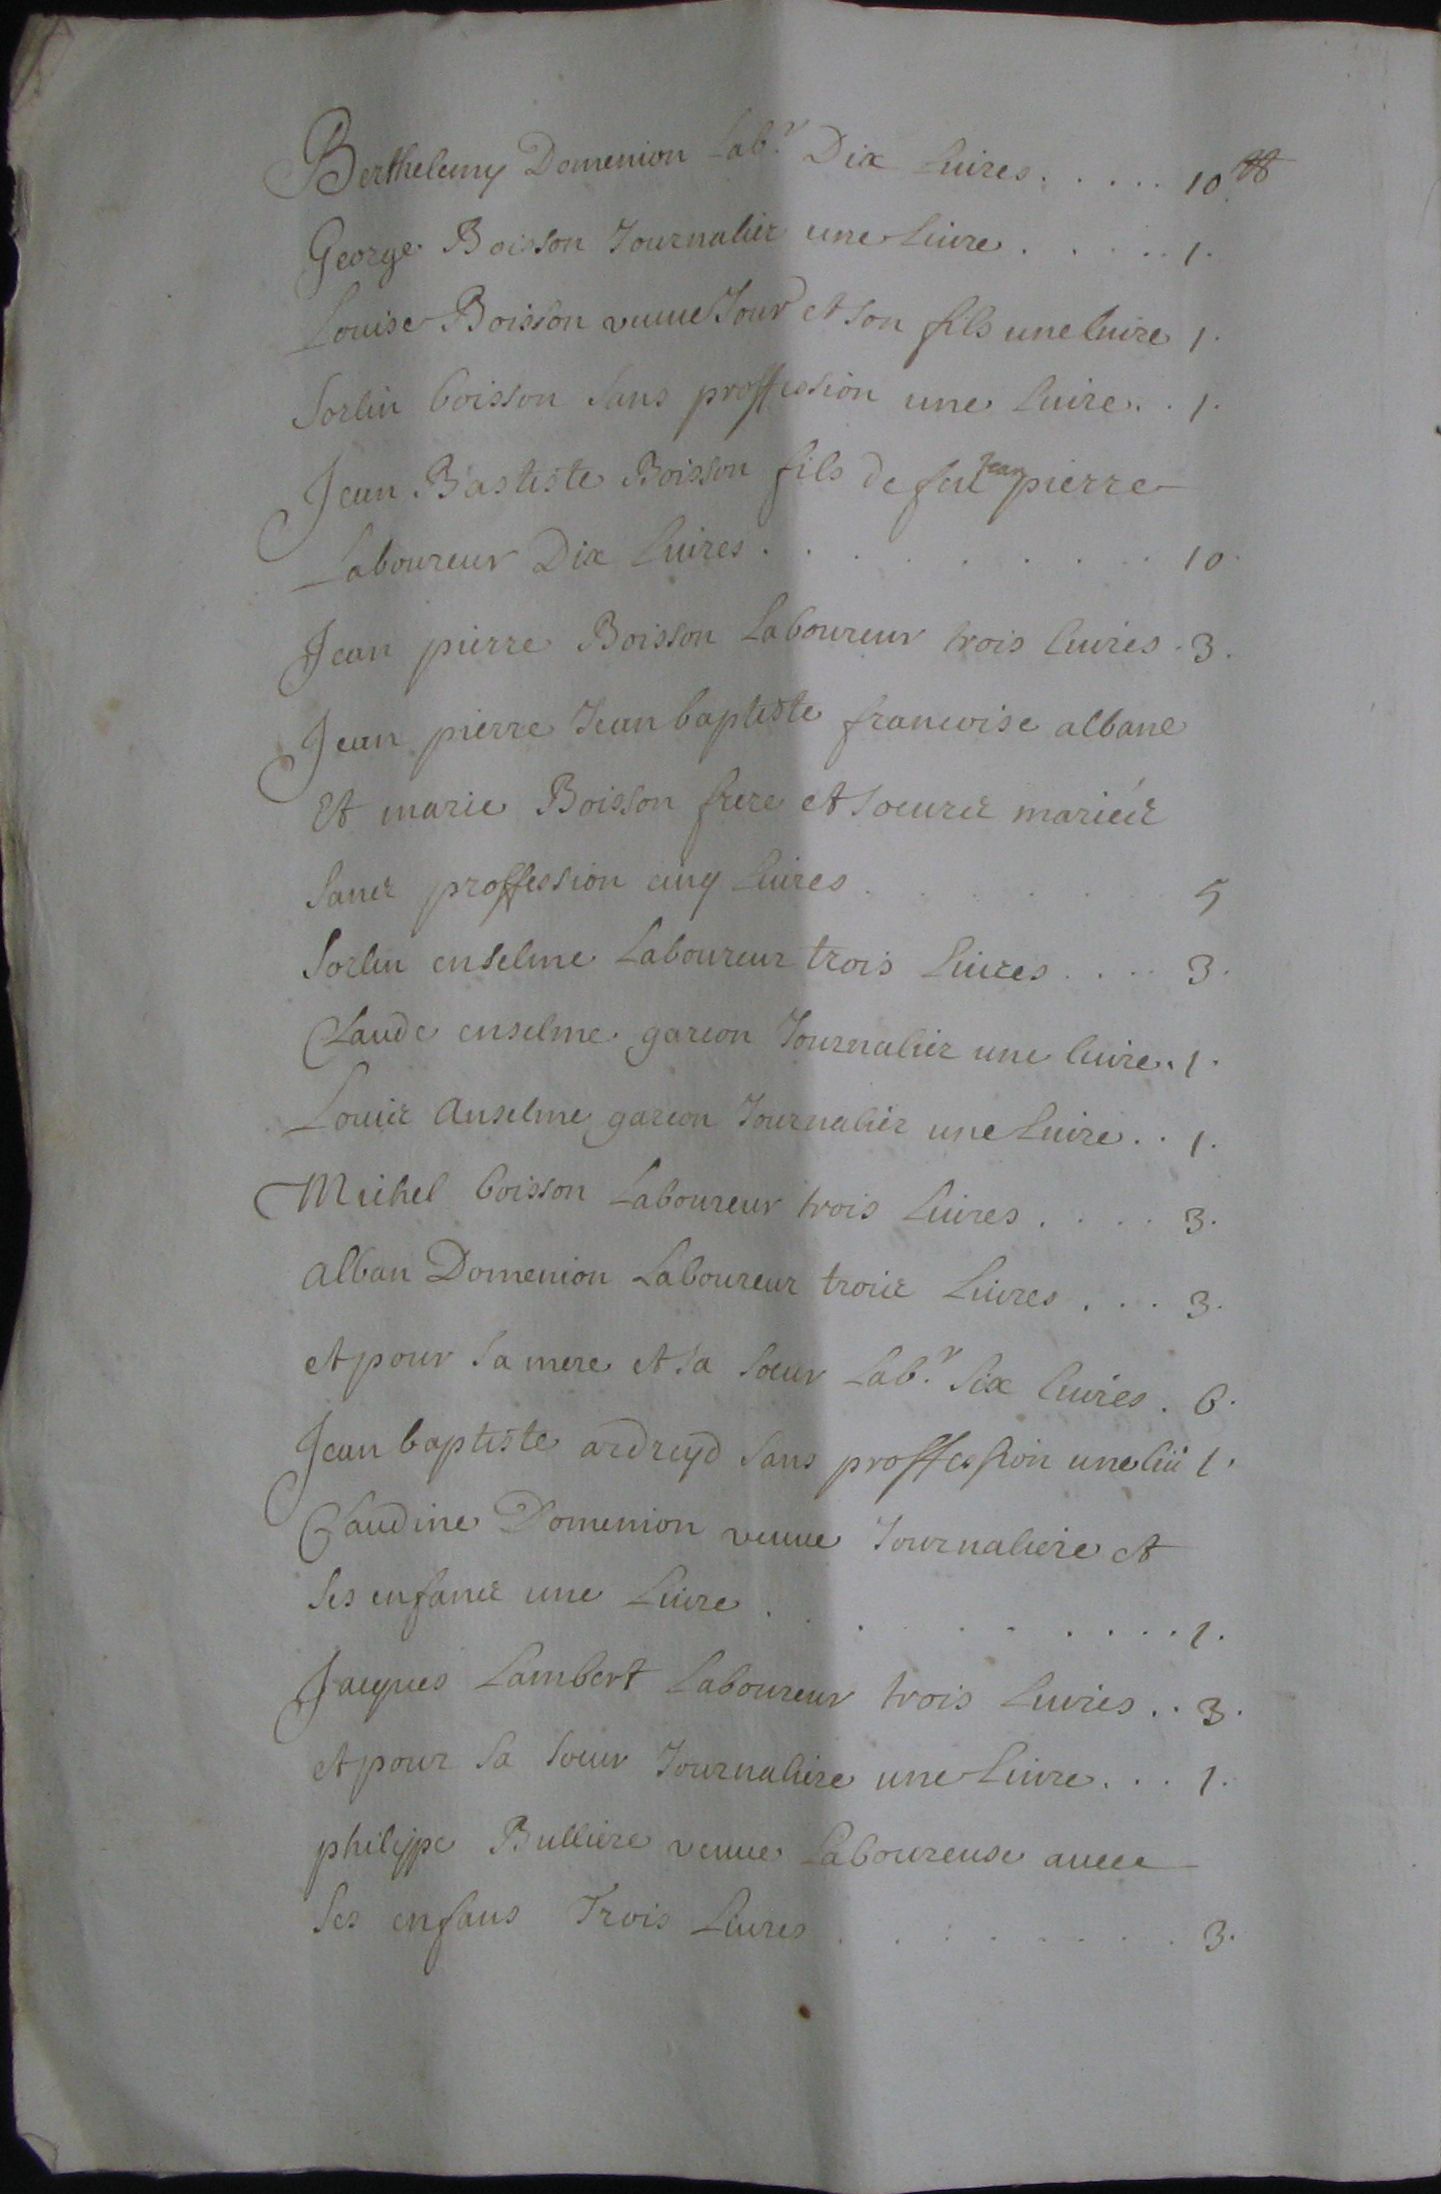 Berthelemy Domenion Lab.r Dix Liures..... 10.₶
George Boisson Journalier une Liure..... 1.
Louise Boisson veuue Jour et son fils une liure 1.
Sorlin boisson sans proffession une liure.. 1.
Jean Bastiste Boisson fils de feu Jean pierre
Laboureur Dix liures......... 10.
Jean pierre Boisson Laboureur trois liures. 3.
Jean pierre Jean baptiste francoise albane
Et marie Boisson frere et soeures mariées
sans proffession cinq liures....... 5
Sorlin enselme Laboureur trois liures.... 3.
Claude enselme garcon Journalier une liure. 1.
Louis Anselme garcon Journalier une Liure.. 1.
Michel boisson Laboureur trois liures.... 3.
alban Domenion Laboureur trois Liures... 3.
et pour sa mere et sa soeur Lab.r six liures. 6.
Jean baptiste ardreyd sans proffession une liu 1.
Claudine Domenion veuue Journaliere et
ses enfans une Liure......... 1.
Jacques Lambert Laboureur trois Liures.. 3.
et pour sa soeur Journaliere une Liure... 1.
philippe Bulliere veuue Laboureuse auec
ses enfans Trois Liures......... 3.